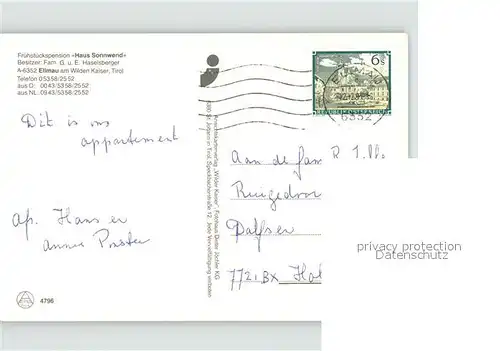 Frühstückspension »Haus Sonnwend«
Besitzer: Fam. G. u. E. Haselsberger
A-6352 Ellmau am Wilden Kaiser, Tirol
Telefon 05358/2552
aus D: 0043/5358/2552
aus NL: 0943/5358/2552
6s
6352
REPUBLIK ÖSTERREICH
Dit is ons
appartement
ap. Hans en
annie
Postkartenverlag „Wilder Kaiser", Fotohaus Dieter Jöchler KG
6380 St. Johann in Tirol, Speckbacherstraße 12. Jede Vervielfältigung verboten
Aan de fam
Dalfsen
7721 BX
privacy protection
Datenschutz
4796